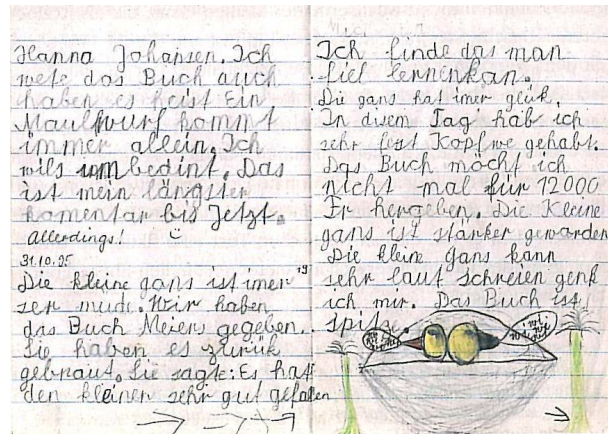 Hanna Johansen. Ich
wete das Buch auch
haben es heist Ein
Maulwurf kommt
immer allein. Ich
wils umbedint. Das
ist mein längster
komentar bis Jetzt.
Allerdings!
31.10.95
Die kleine gans ist imer
ser mude. Wir haben
das Buch Meiers gegeben.
Sie haben es zurük
gebraut. Sie sagte: Es hat
den kleinen sehr gut gefallen
Ich finde das man
fiel lernenkan.
Die gans hat imer glük.
In disem Tag hab ich
sehr fest Kopfwe gehabt.
Das Buch möcht ich
nicht mal für 12000
Fr hergeben. Die Kleine
gans ist starker geworden
Die kleine Gans kann
sehr laut schreien genk
ich mir. Das Buch ist
spitze.